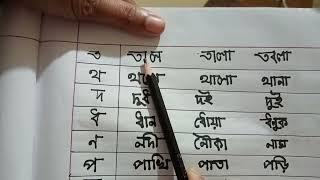 ত তাল তালা তবলা
থ থলে থালা থানা
দ দুধ দই দুই
ধ ধান ধোঁয়া ধনুক
ন নদী নৌকা নাম
প পাখি পাতা পড়ি